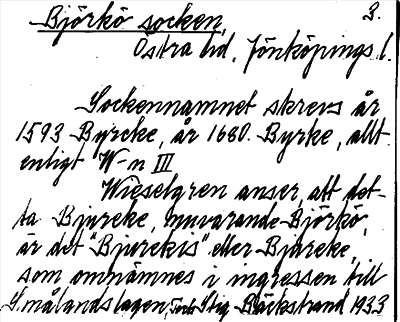 Björkö socken, 3.
Östra hd. Jönköpings l.
Sockennamnet skrevs år
1593 Byrcke, år 1680 Byrke, allt
enligt W-n III
Wieselgren anser, att det-
ta Bjureke, nuvarande Björkö,
är det "Biurekis" eller Bjäreke,
som omnämnes i ingressen till
Smålandslagen, Stig Bäckstrand 1933